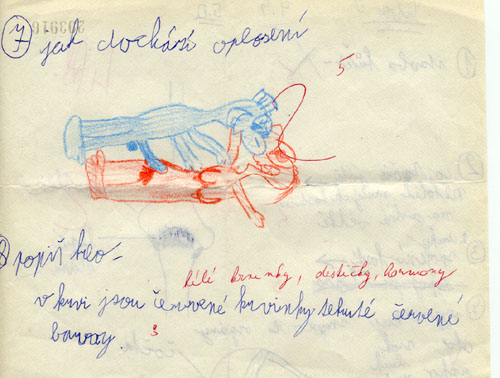 7 jak dochází oplosení
5
8 popiš kev-
bílé krvinky, destičky, hormony
v krvi jsou červené krvinky tekuté červené
barvy. 3